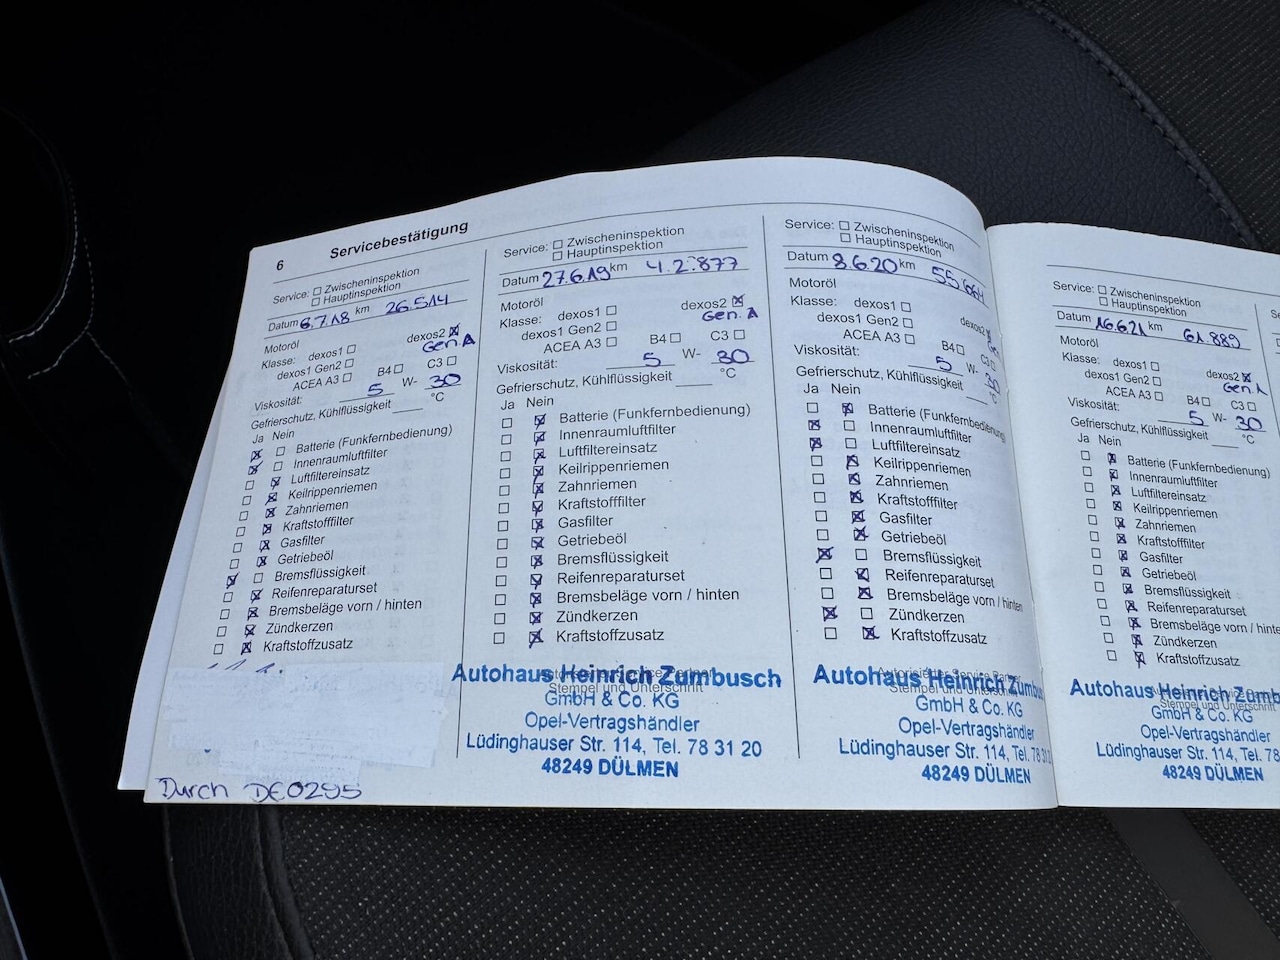 6 Servicebestätigung
Service: Zwischeninspektion
Hauptinspektion
Datum 6.7.18 km 26.514
Motoröl
Klasse: dexos1 dexos2
dexos1 Gen2 Gen. A
ACEA A3 B4 C3
Viskosität: 5 W- 30
Gefrierschutz, Kühlflüssigkeit °C
Ja Nein
Batterie (Funkfernbedienung)
Innenraumluftfilter
Luftfiltereinsatz
Keilrippenriemen
Zahnriemen
Kraftstofffilter
Gasfilter
Getriebeöl
Bremsflüssigkeit
Reifenreparaturset
Bremsbeläge vorn / hinten
Zündkerzen
Kraftstoffzusatz
Durch DE0295
Service: Zwischeninspektion
Hauptinspektion
Datum 27.6.19 km 42.877
Motoröl
Klasse: dexos1 dexos2
dexos1 Gen2 Gen. A
ACEA A3 B4 C3
Viskosität: 5 W- 30
Gefrierschutz, Kühlflüssigkeit °C
Ja Nein
Batterie (Funkfernbedienung)
Innenraumluftfilter
Luftfiltereinsatz
Keilrippenriemen
Zahnriemen
Kraftstofffilter
Gasfilter
Getriebeöl
Bremsflüssigkeit
Reifenreparaturset
Bremsbeläge vorn / hinten
Zündkerzen
Kraftstoffzusatz
Autohaus Heinrich Zumbusch
Stempel und Unterschrift
GmbH & Co. KG
Opel-Vertragshändler
Lüdinghauser Str. 114, Tel. 78 31 20
48249 DÜLMEN
Service: Zwischeninspektion
Hauptinspektion
Datum 8.6.20 km 55.664
Motoröl
Klasse: dexos1 dexos2
dexos1 Gen2
ACEA A3 B4 C3
Viskosität: 5 W- 30
Gefrierschutz, Kühlflüssigkeit °C
Ja Nein
Batterie (Funkfernbedienung
Innenraumluftfilter
Luftfiltereinsatz
Keilrippenriemen
Zahnriemen
Kraftstofffilter
Gasfilter
Getriebeöl
Bremsflüssigkeit
Reifenreparaturset
Bremsbeläge vorn / hinten
Zündkerzen
Kraftstoffzusatz
Autorisierter Service Partner
Autohaus Heinrich Zumbu
Stempel und Unterschrift
GmbH & Co. KG
Opel-Vertragshändler
Lüdinghauser Str. 114, Tel. 78 31
48249 DÜLMEN
Service: Zwischeninspektion
Hauptinspektion
Datum 16.6.21 km 61.889
Motoröl
Klasse: dexos1 dexos2
dexos1 Gen2 Gen. A
ACEA A3 B4 C3
Viskosität: 5 W- 30
Gefrierschutz, Kühlflüssigkeit °C
Ja Nein
Batterie (Funkfernbedienung)
Innenraumluftfilter
Luftfiltereinsatz
Keilrippenriemen
Zahnriemen
Kraftstofffilter
Gasfilter
Getriebeöl
Bremsflüssigkeit
Reifenreparaturset
Bremsbeläge vorn / hinte
Zündkerzen
Kraftstoffzusatz
Autohaus Heinrich Zumb
Stempel und Unterschrift
GmbH & Co. KG
Opel-Vertragshändler
Lüdinghauser Str. 114, Tel. 78
48249 DÜLMEN